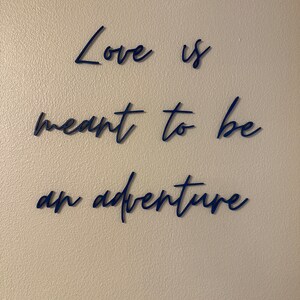 Love is
meant to be
an adventure